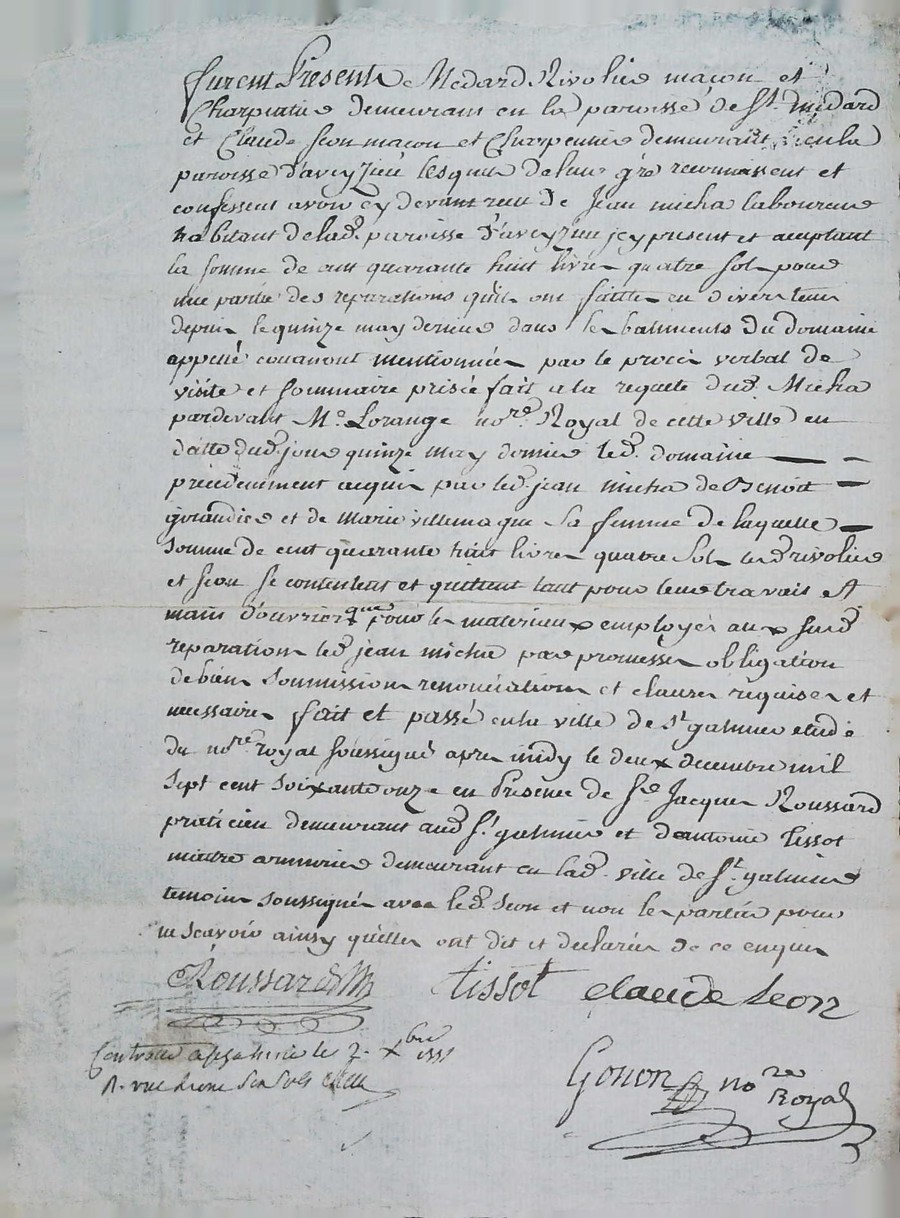 furent Présents Medard Rivolier maçon et
Charpentier demeurant en la paroisse de St. medard
et Claude Seon maçon et Charpentier demeurant en la
paroisse d'aveyzieu lesquels de leur gré reconnaissent et
confessent avoir cy devant reçu de Jean micha laboureur
habitant de lad. paroisse d'aveyzieu icy present et acceptant
la somme de cent quarante huit livres quatre sols pour
une partie des reparations qu'ils ont faittes en divers tems
depuis le quinze may dernier dans les batiments du domaine
appellé mentionnées par le procès verbal de
visite et sommaire prisée fait a la requete dud. Micha
pardevant Me. Lorange nore. Royal de cette ville en
datte dud. jour quinze may dernier led. domaine
précédemment acquis par led. jean micha de Benoit
giraudier et de marie villemague sa femme de laquelle
somme de cent quarante huit livres quatre sols lesd. rivolier
et seon se contentent et quittent tant pour leur travail et
mains d'ouvriers que pour les materiaux employés aux susd.
reparations led. jean micha par promesses obligation
de biens soumissions renonciations et clauses requises et
necessaires fait et passé en la ville de St galmier etude
du nore royal soussigné apres midy le deux decembre mil
sept cent soixante onze en Presence de Sr. Jacques Roussard
praticien demeurant aud. St. galmier et d'antoine tissot
maitre armurier demeurant en lad. ville de St. galmier
temoins soussignés avec led. Seon et non les parties pour
ne scavoir ainsy qu'elles ont dit et declarées de ce enquis
Roussard tissot claude seon
Controllé a St galmier le 7. Xbre 1771
R.
Gonon nore
Royal